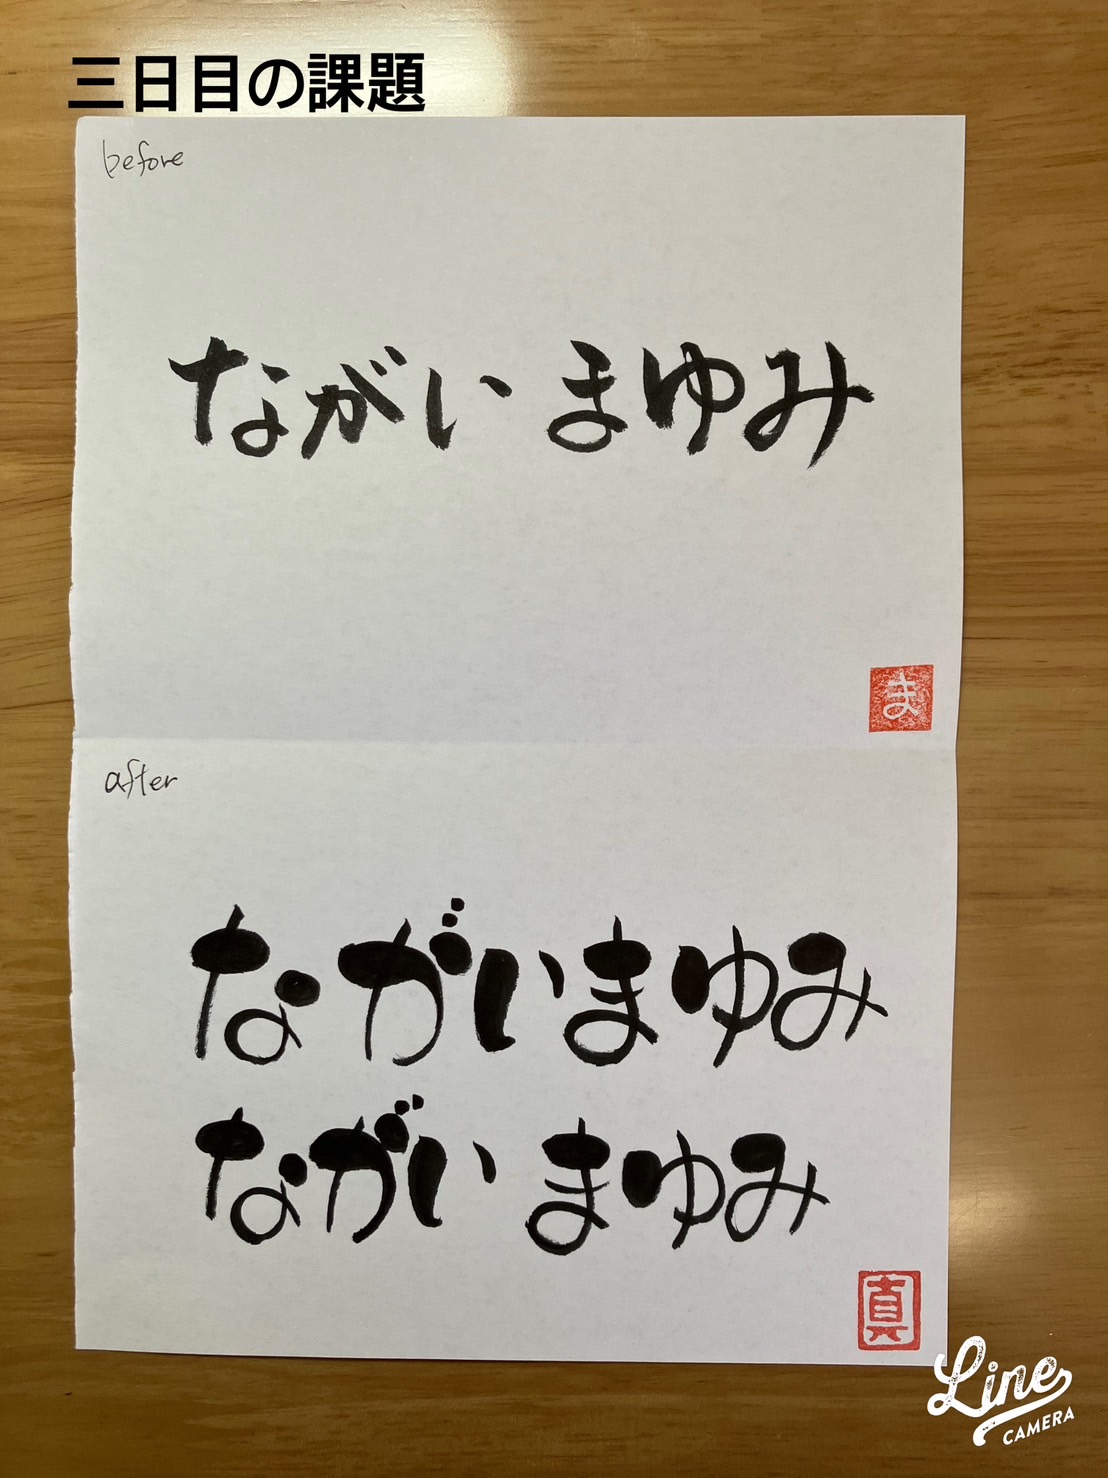 三日目の課題
before
ながい まゆみ
ま
after
ながいまゆみ
ながい まゆみ
真
Line
CAMERA